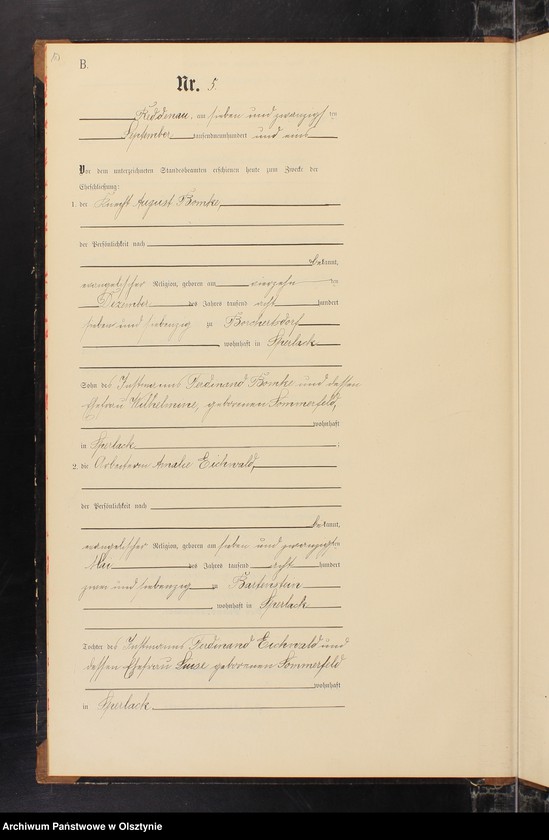 B.
Nr. 5.
Keddenau, am sieben und zwanzigsten
September tausendneunhundert und eins
Vor dem unterzeichneten Standesbeamten erschienen heute zum Zwecke der
Eheschließung:
1. der Knecht August Bomke,
der Persönlichkeit nach
bekannt,
evangelischer Religion, geboren am vierzehn ten
Dezember des Jahres tausend acht hundert
sieben und siebenzig zu Borchertsdorf
, wohnhaft in Sperlack
Sohn des Instmanns Ferdinand Bomke und dessen
Ehefrau Wilhelmine, geborenen Sommerfeld,
wohnhaft
in Sperlack
2. die Arbeiterin Amalie Eichwald,
der Persönlichkeit nach
bekannt,
evangelischer Religion, geboren am sieben und zwanzigsten
Mai des Jahres tausend acht hundert
zwei und siebenzig zu Bartenstein
, wohnhaft in Sperlack
Tochter des Instmanns Ferdinand Eichwald und
dessen Ehefrau Luise geborenen Sommerfeld
wohnhaft
in Sperlack
Archiwum Państwowe w Olsztynie